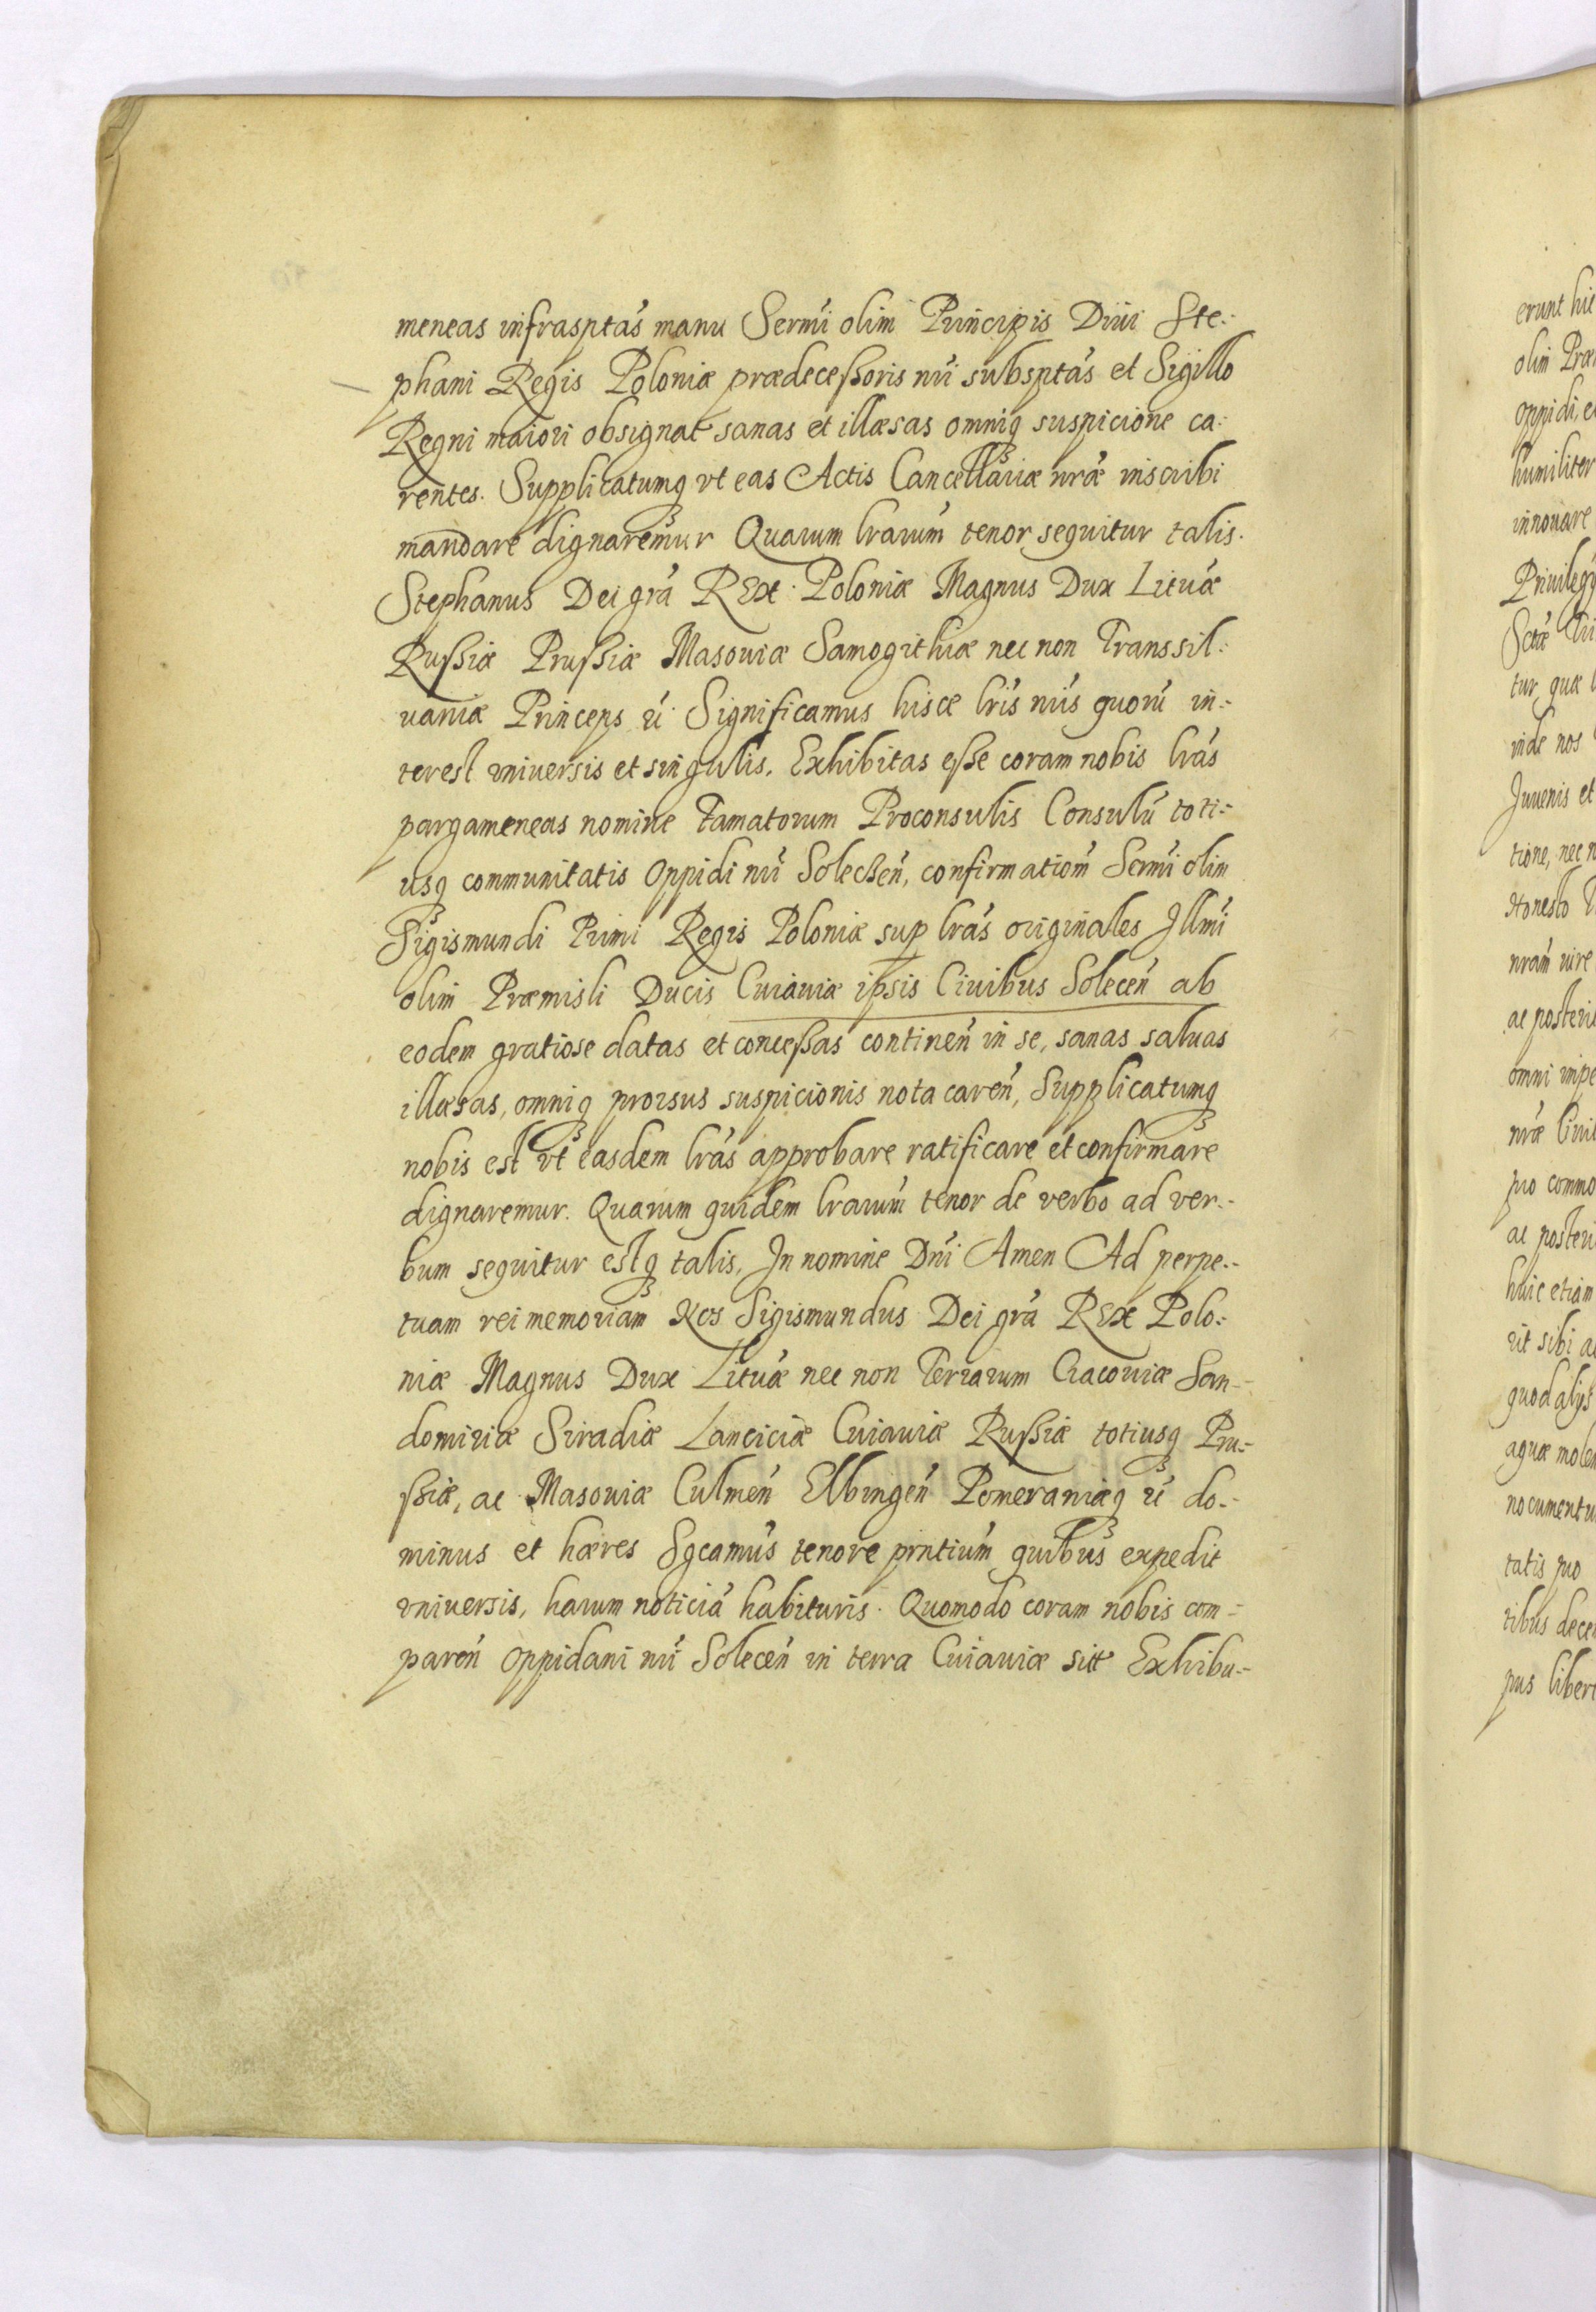 meneas infrasptas manu Sermi olim Principis Diui Ste-
phani Regis Poloniæ prædecessoris nri subsptas et Sigillo
Regni maiori obsignat sanas et illæsas omniq suspicione ca-
rentes. Supplicatumq vt eas Actis Cancellariæ nræ inscribi
mandare dignaremur Quarum lrarum tenor sequitur talis.
Stephanus Dei gra REx Poloniæ Magnus Dux Lituæ
Russiæ Prussiæ Masouiæ Samogithiæ nec non Transsil-
uaniæ Princeps Significamus hisce lris nris quorū in-
terest vniuersis et singulis. Exhibitas esse coram nobis lras
pargameneas nomine Famatorum Proconsulis Consulū toti-
usq communitatis Oppidi nri Solecen, confirmationem Sermi olim
Sigismundi Primi Regis Poloniæ sup lras originales Illmi
olim Præmisli Ducis Cuiauiæ ipsis Ciuibus Solecen ab
eodem gratiose datas et concessas continen in se, sanas saluas
illæsas, omniq prorsus suspicionis nota caren, Supplicatumq
nobis est vt easdem lras approbare ratificare et confirmare
dignaremur. Quarum quidem lrarum tenor de verbo ad ver-
bum sequitur estq talis. In nomine Dni Amen Ad perpe-
tuam rei memoriam Nos Sigismundus Dei gra REx Polo-
niæ Magnus Dux Lituæ nec non Terrarum Cracouiæ San-
domiriæ Siradiæ Lanciciæ Cuiauiæ Russiæ totiusq Pru-
ssiæ, ac Masouiæ Culmen Elbingen Pomeraniæq do-
minus et hæres Sgcamus tenore prntium quibus expedit
vniuersis, harum noticiā habituris. Quomodo coram nobis com-
paren Oppidani nri Solecen in terra Cuiauiæ Exhibu-
erunt
olim
oppidi,
humiliter
innouare
Priuilegy
tur quæ
inde nos
Juuenis et
tione, nec
Honesto
nram iure
ac posteri
omni
nræ
pro commo
ac posteri
huic etiam
sibi
quod alijs
aquæ
nocument
tatis pro
pus